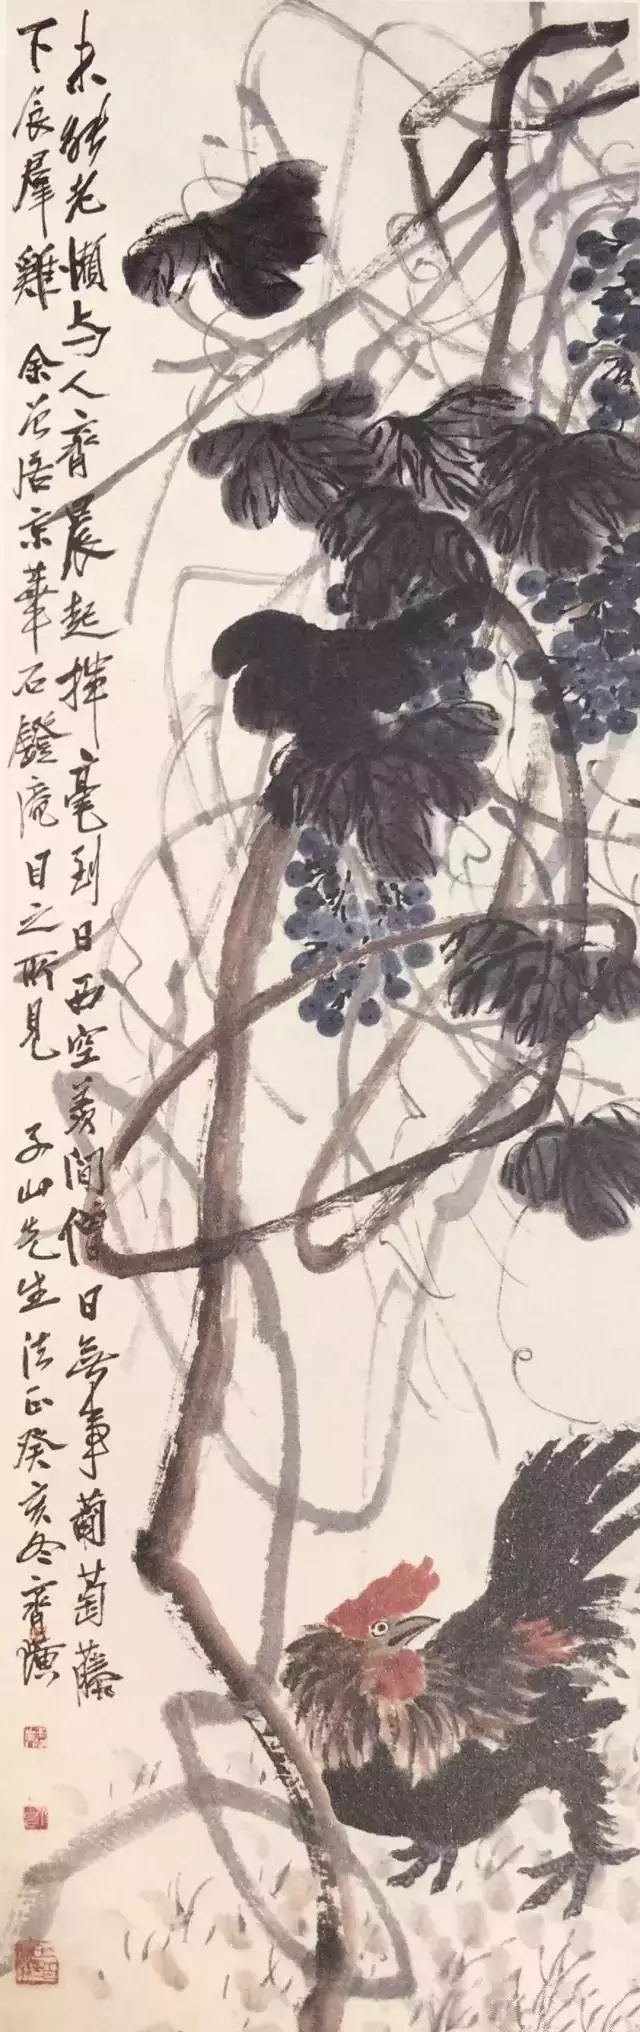 未能老懶与人齊晨起揮毫到日西空羨閒僧日無事葡萄藤
下食羣雞 余曾居京華石鐙庵目之所見 子山先生法正癸亥冬齊璜